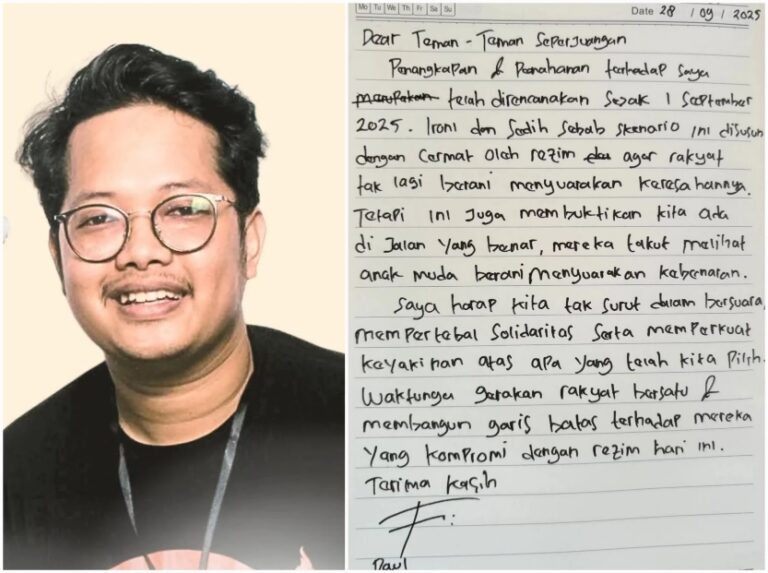 Mo Tu We Th Fr Sa Su
Date 28 / 09 / 2025
Dear Teman - Teman Seperjuangan
Penangkapan & Penahanan terhadap saya
merupakan telah direncanakan sejak 1 September
2025. Ironi dan Sedih sebab skenario ini disusun
dengan cermat oleh rezim agar rakyat
tak lagi berani menyuarakan keresahannya.
Tetapi ini Juga membuktikan kita ada
di Jalan yang benar, mereka takut melihat
anak muda berani menyuarakan kebenaran.
Saya harap kita tak surut dalam bersuara,
mempertebal Solidaritas Serta memperkuat
keyakinan atas apa yang telah kita Pilih.
Waktunya gerakan rakyat bersatu &
membangun garis batas terhadap mereka
yang kompromi dengan rezim hari ini.
Terima Kasih
Paul